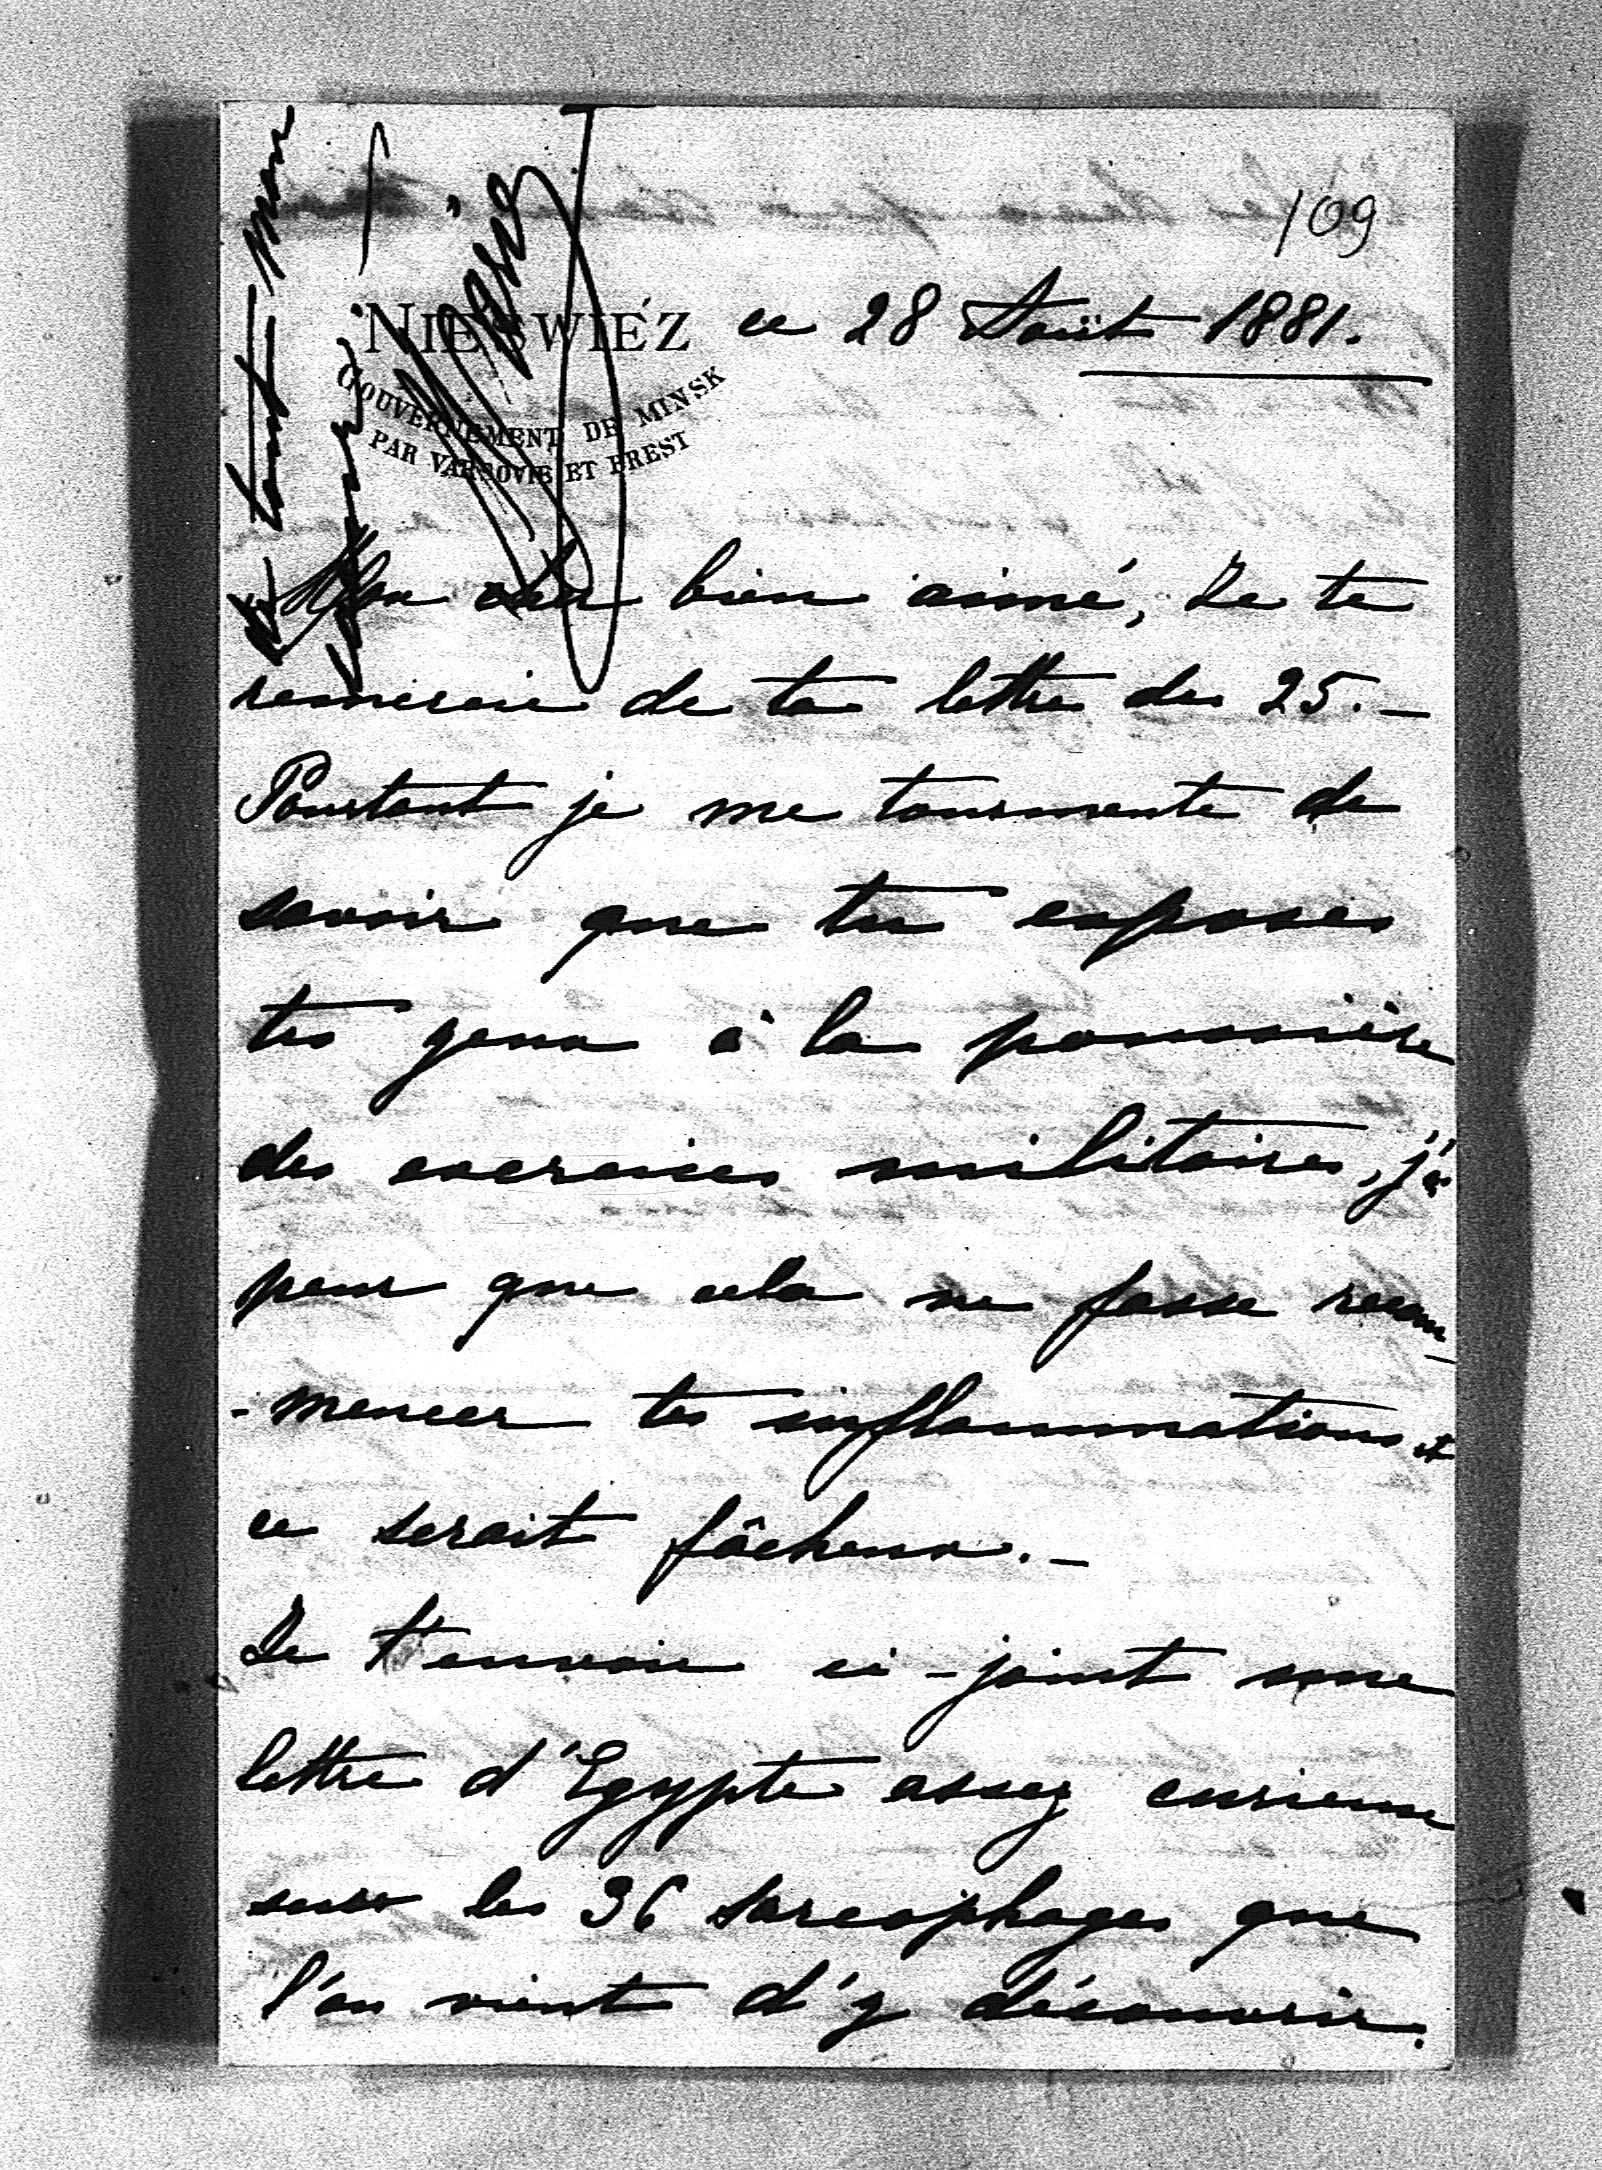 109
NIESWIÉZ ce 28 Août 1881.
GOUVERNEMENT DE MINSK
PAR VARSOVIE ET BREST
Mon cher bien aimé, Je te
remercie de ta lettre du 25. —
Pourtant je me tourmente de
savoir que tu exposes
tes yeux à la poussière
des exercices militaires, j'ai
peur que cela ne fasse recom
-mencer tes inflammations et
ce serait fâcheux. —
Je t'envoie ci-joint une
lettre d'Egypte assez curieuse
sur les 36 sarcophages que
l'on vient d'y découvrir.